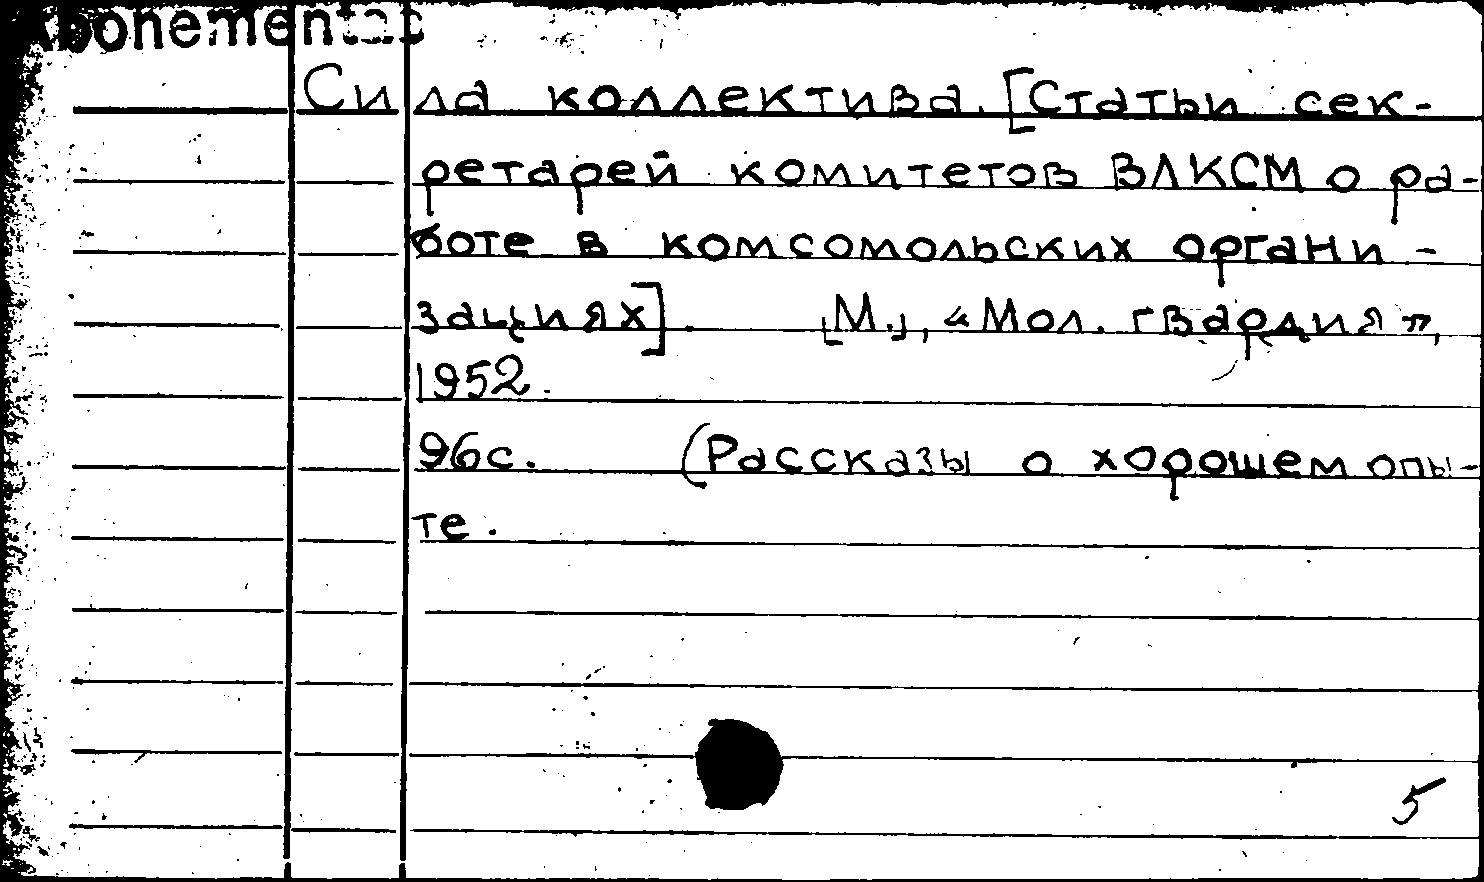 Abonementas
Сила коллектива. [Статьи сек-
ретарей комитетов ВЛКСМ о ра-
боте в комсомольских органи-
зациях]. [М.], «Мол. гвардия»,
1952.
96с. (Рассказы о хорошем опы-
те.
5